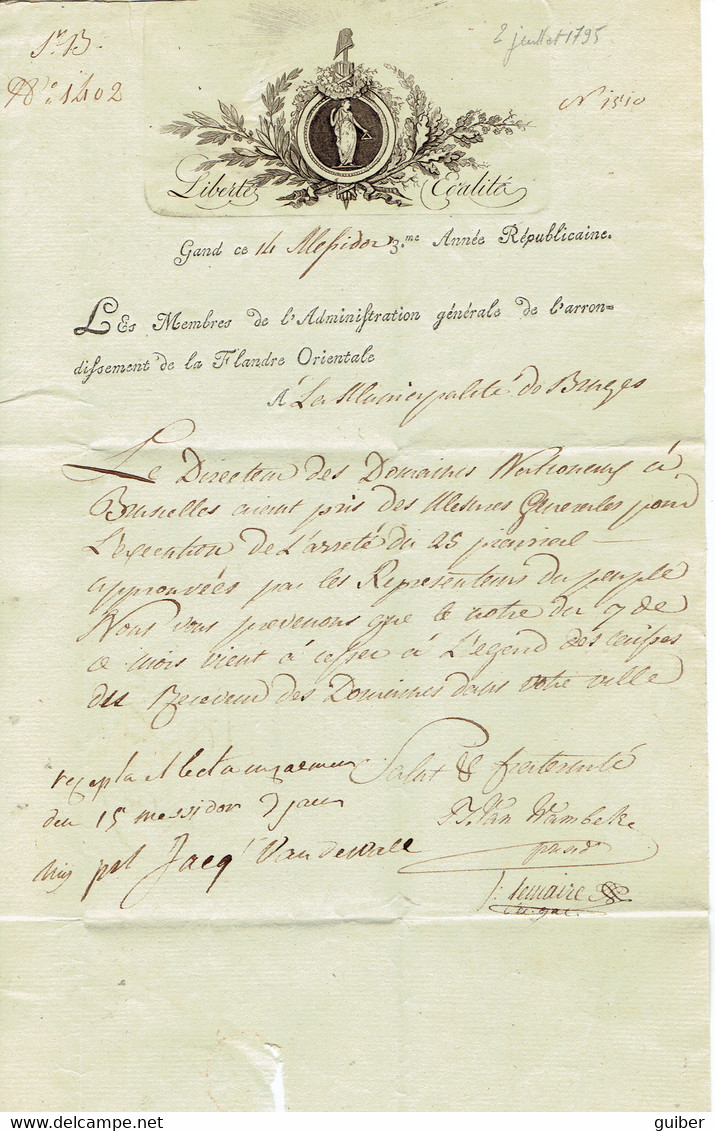 Sr. B
2 juillet 1795
No. 1402
No 1510
Liberté Egalité
Gand ce 14 Messidor 3.me Année Républicaine.
LEs Membres de l'Adminiſtration générale de l'arron-
diſsement de la Flandre Orientale
A La Municipalité de Bruges
Le Directeur des Domaines Nationeux à
Bruxelles aient pris des Mesures Generales pour
L'execution de L'arreté du 25 prairial
approuvées par les Representens du peuple
Nous vous prevenons que le notre du 7 de
ce mois vient à cesser à L'egard des caisses
du Receveur des Domaines dans votre ville
Salut & fraternité
recepta et lecta
den 15 messidor 3 jaer
Van Wambeke
presd
my pnt Jacq. Vandewalle
J: Lemaire
guiber
DELCAMPE.NET